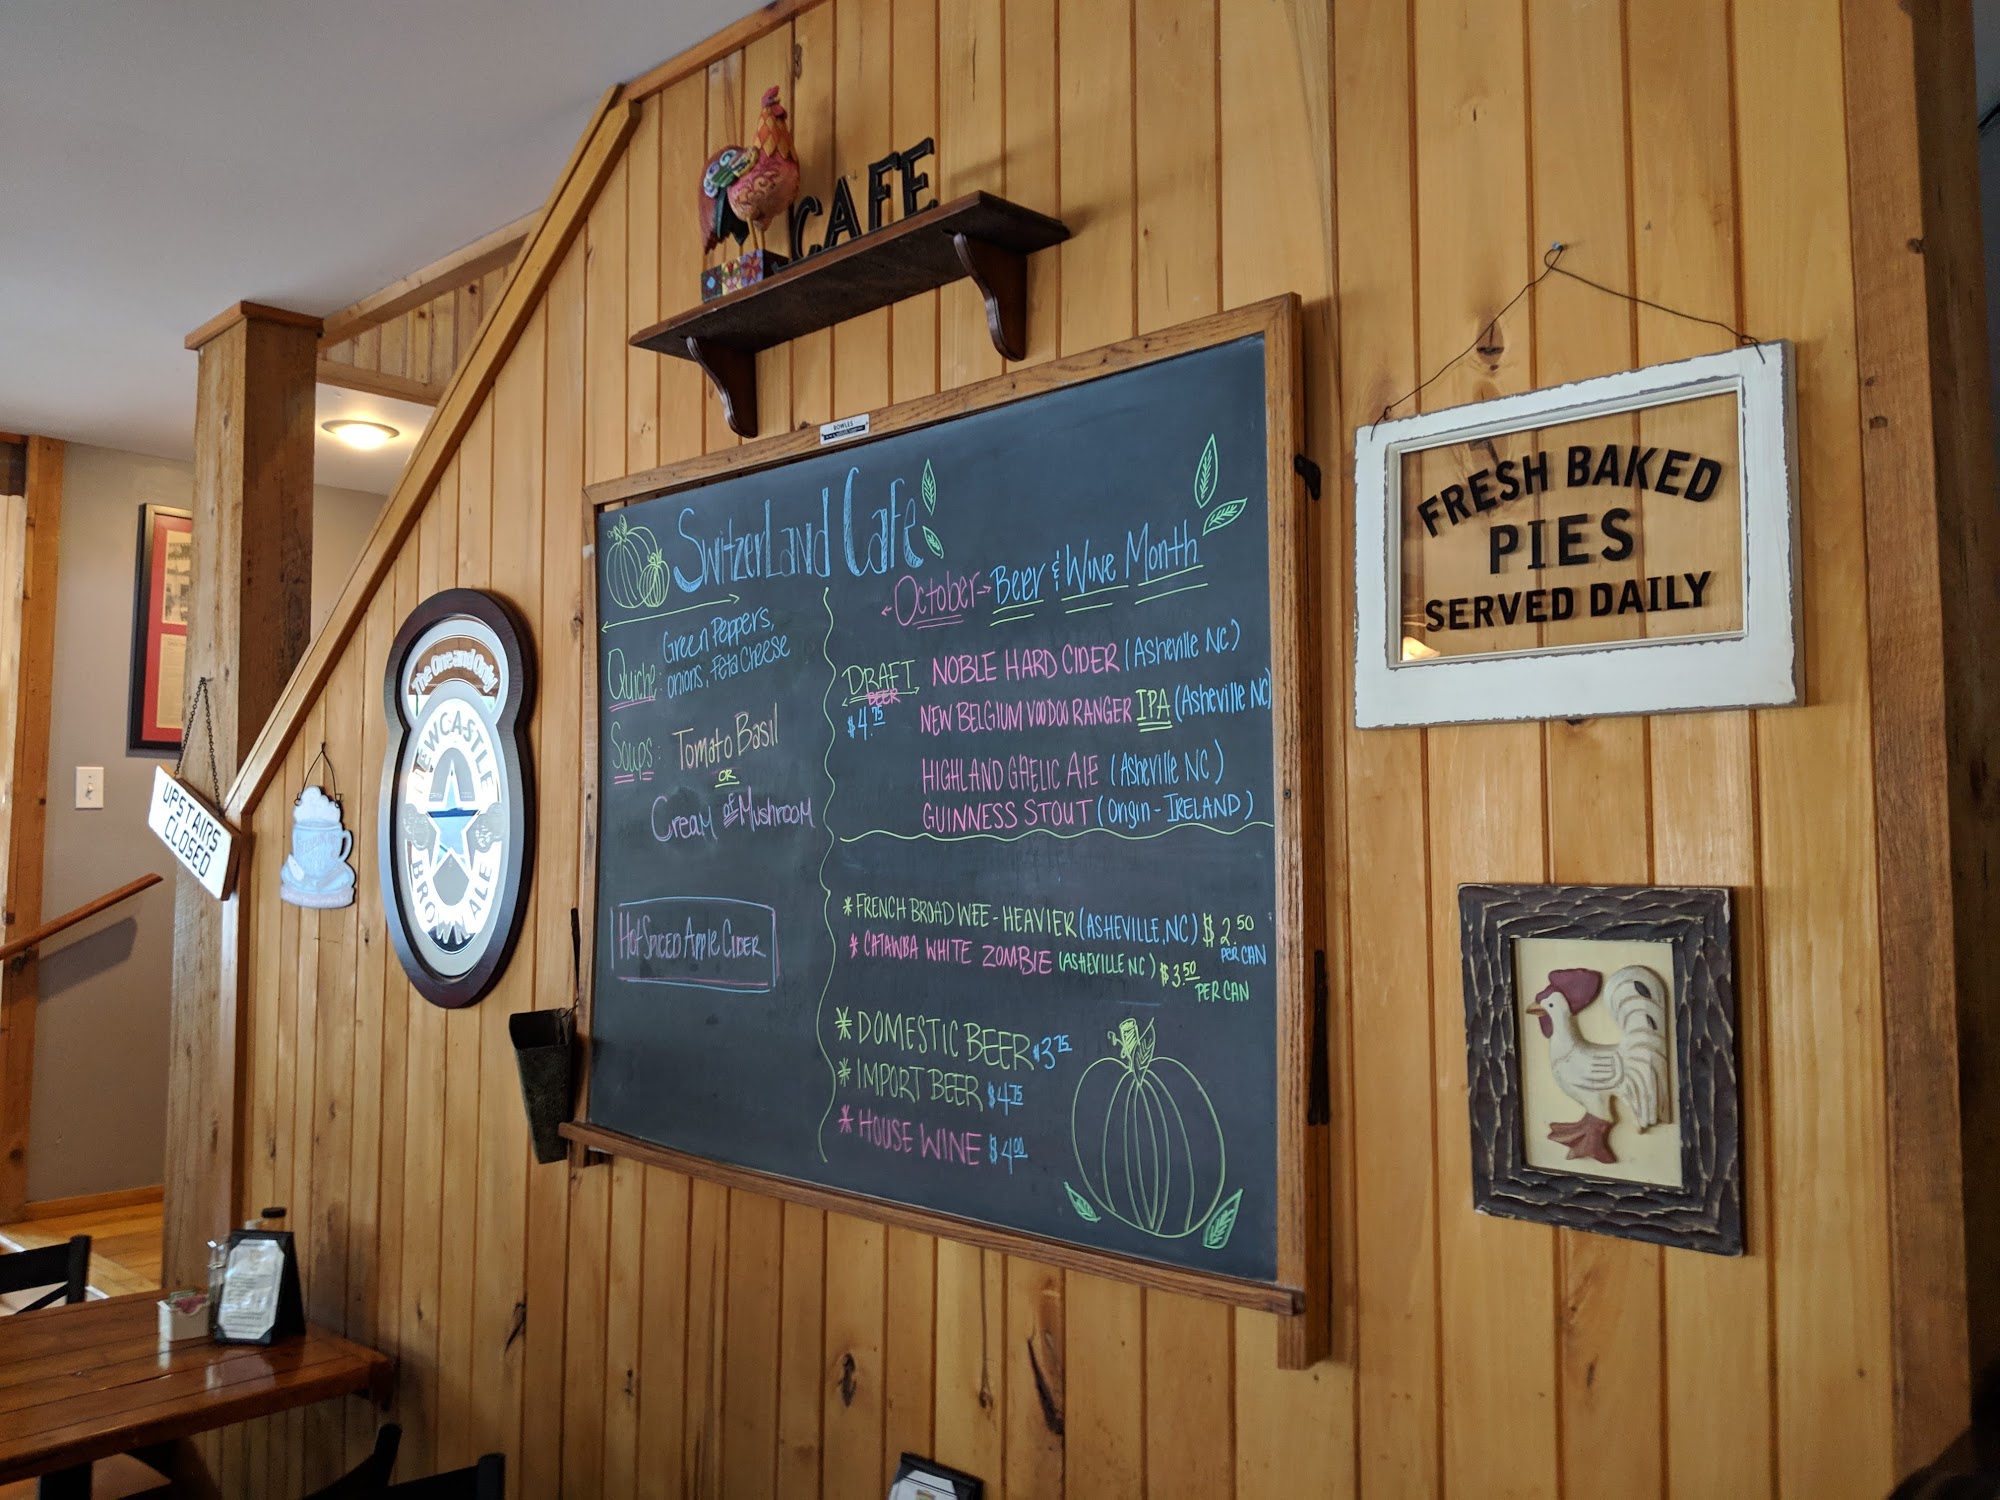 CAFE
BOWLES
Switzerland Cafe
October Beer & Wine Month
Quiche: Green Peppers,
onions, Feta Cheese
Soups: Tomato Basil
OR
Cream of Mushroom
Hot Spiced Apple Cider
DRAFT
BEER
$4.75
NOBLE HARD CIDER (Asheville NC)
NEW BELGIUM VOODOO RANGER IPA (Asheville NC)
HIGHLAND GAELIC ALE (Asheville NC)
GUINNESS STOUT (Origin - IRELAND)
* FRENCH BROAD WEE-HEAVIER (ASHEVILLE, NC) $2.50
PER CAN
* CATAWBA WHITE ZOMBIE (ASHEVILLE NC) $3.50
PER CAN
* DOMESTIC BEER $3.75
* IMPORT BEER $4.75
* HOUSE WINE $4.00
FRESH BAKED
PIES
SERVED DAILY
The One and Only
NEWCASTLE
BROWN ALE
UPSTAIRS
CLOSED